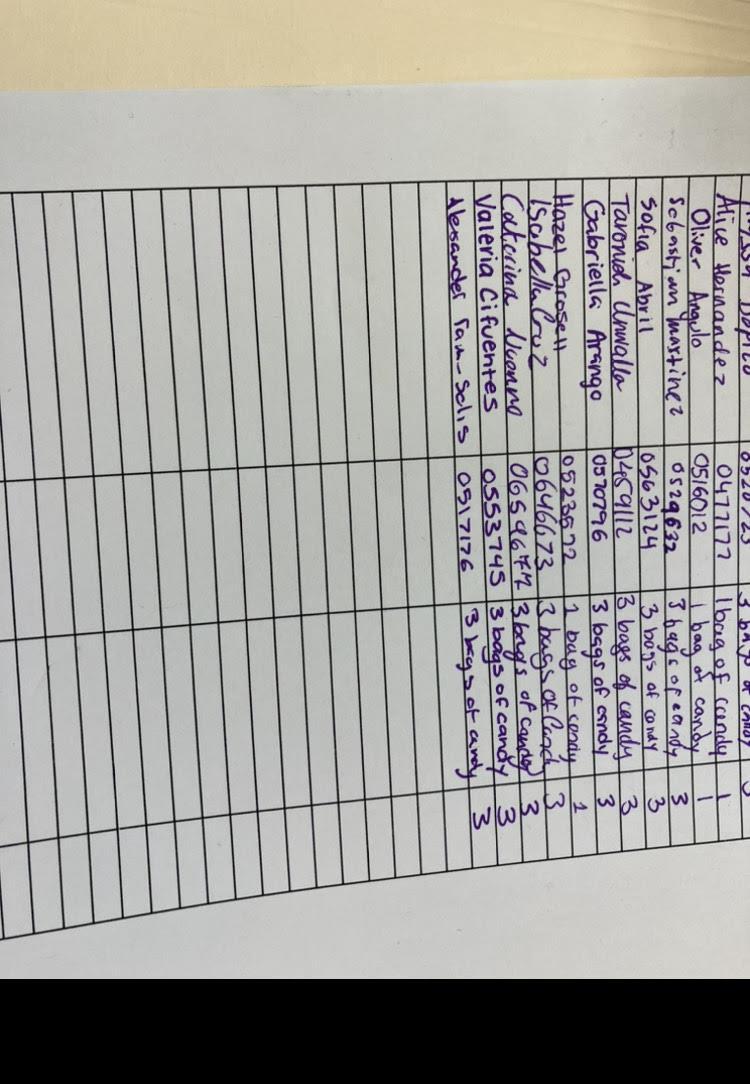 Alice Hernandez 0477177 1 bag of candy 1
Oliver Angulo 0516012 1 bag of candy 1
Sebastian Martinez 0529632 3 bags of candy 3
Sofia Abril 0563124 3 bags of candy 3
Unwalla 0459112 3 bags of candy 3
Gabriella Arango 0570796 3 bags of candy 3
Hazel Grosell 1 bag of candy 1
Isabella Cruz 0646673 3 bags of Candy 3
Caterina 3 bags of candy 3
Valeria Cifuentes 0553745 3 bags of candy 3
Alexander Solis 0517176 3 bags of candy 3